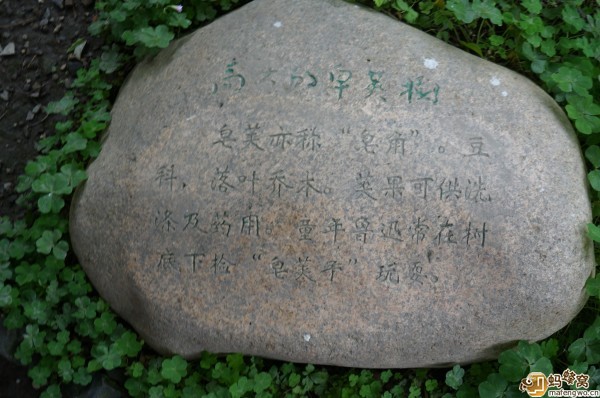 高大的皂荚树
皂荚亦称“皂角”。豆
科，落叶乔木。荚果可供洗
涤及药用。童年鲁迅常在树
底下捡“皂荚子”玩耍。
蚂蜂窝
mafengwo.cn